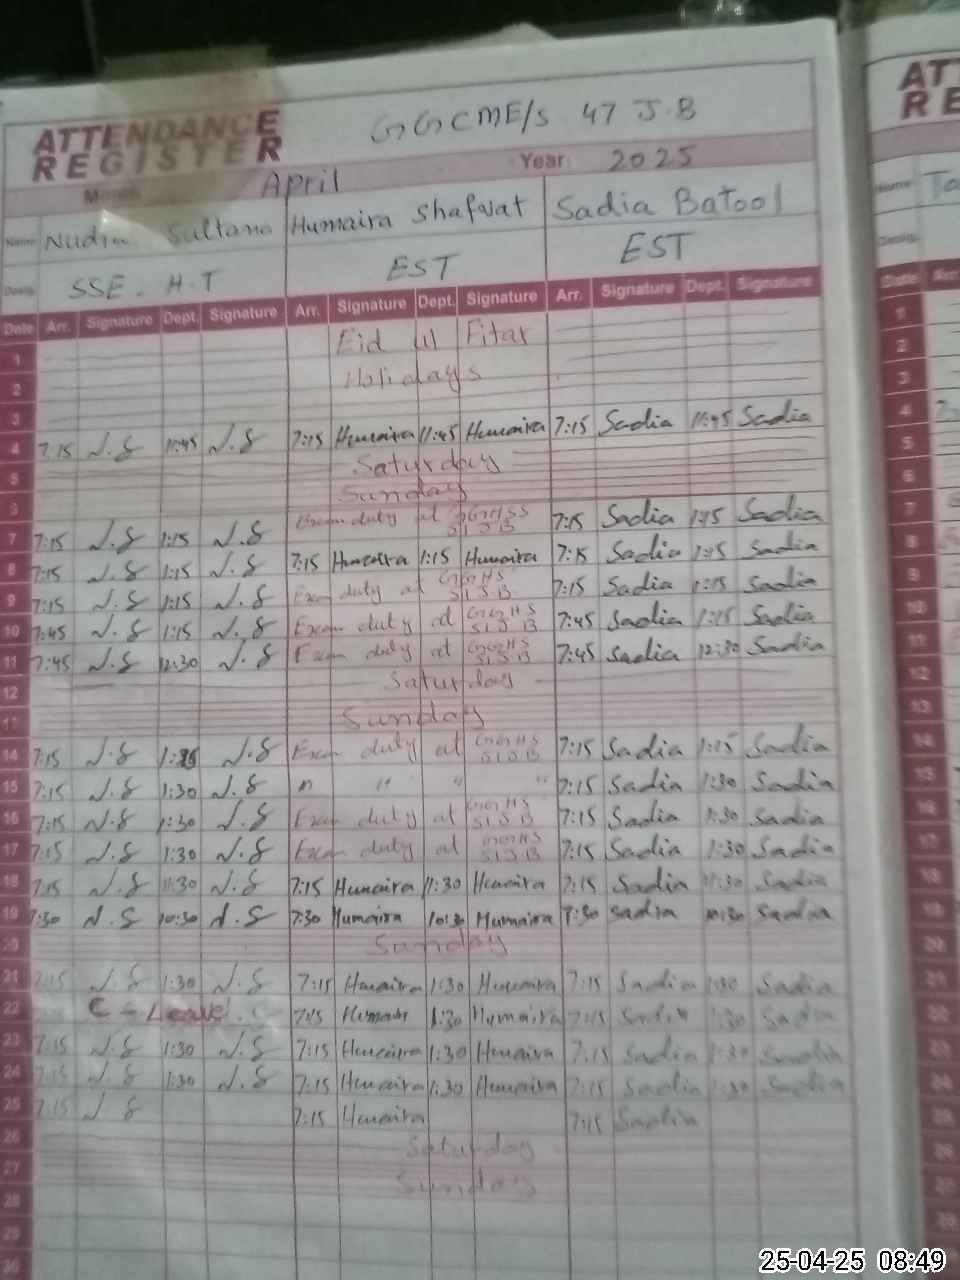 ATTENDANCE REGISTER GGCME/S 47 J.B
Month April Year: 2025
Name Nudia Sultana Humaira Shafqat Sadia Batool
Desig. SSE. H.T EST EST
Date Arr. Signature Dept. Signature Arr. Signature Dept. Signature Arr. Signature Dept. Signature
1 Eid ul Fitar
2 Holidays
3
4 7:15 N.S 11:45 N.S 7:15 Humaira 11:45 Humaira 7:15 Sadia 11:45 Sadia
5 Saturday
6 Sunday
7 7:15 N.S 1:15 N.S Exam duty at GGHSS 51JB 7:15 Sadia 1:15 Sadia
8 7:15 N.S 1:15 N.S 7:15 Humaira 1:15 Humaira 7:15 Sadia 1:15 Sadia
9 7:15 N.S 1:15 N.S Exam duty at GGHS 51JB 7:15 Sadia 1:15 Sadia
10 7:45 N.S 1:15 N.S Exam duty at GGHS 51JB 7:45 Sadia 1:15 Sadia
11 7:45 N.S 12:30 N.S Exam duty at GGHS 51JB 7:45 Sadia 12:30 Sadia
12 Saturday
Sunday
14 7:15 N.S N.S Exam duty at GGHS 51JB 7:15 Sadia 1:15 Sadia
15 7:15 N.S 1:30 N.S " " " " 7:15 Sadia 1:30 Sadia
16 7:15 N.S 1:30 N.S Exam duty at GGHS 51JB 7:15 Sadia 1:30 Sadia
17 7:15 N.S 1:30 N.S Exam duty at GGHS 51JB 7:15 Sadia 1:30 Sadia
18 7:15 N.S 11:30 N.S 7:15 Humaira 11:30 Humaira 7:15 Sadia 11:30 Sadia
19 7:30 N.S 10:30 N.S 7:30 Humaira 10:30 Humaira 7:30 Sadia 10:30 Sadia
20 Sunday
21 7:15 N.S 1:30 N.S 7:15 Humaira 1:30 Humaira 7:15 Sadia 1:30 Sadia
22 C-Leave 7:15 Humaira 1:30 Humaira 7:15 Sadia 1:30 Sadia
23 7:15 N.S 1:30 N.S 7:15 Humaira 1:30 Humaira 7:15 Sadia 1:30 Sadia
24 7:15 N.S 1:30 N.S 7:15 Humaira 1:30 Humaira 7:15 Sadia 1:30 Sadia
25 7:15 N.S 7:15 Humaira 7:15 Sadia
26 Saturday
27 Sunday
28
29
30
25-04-25 08:49